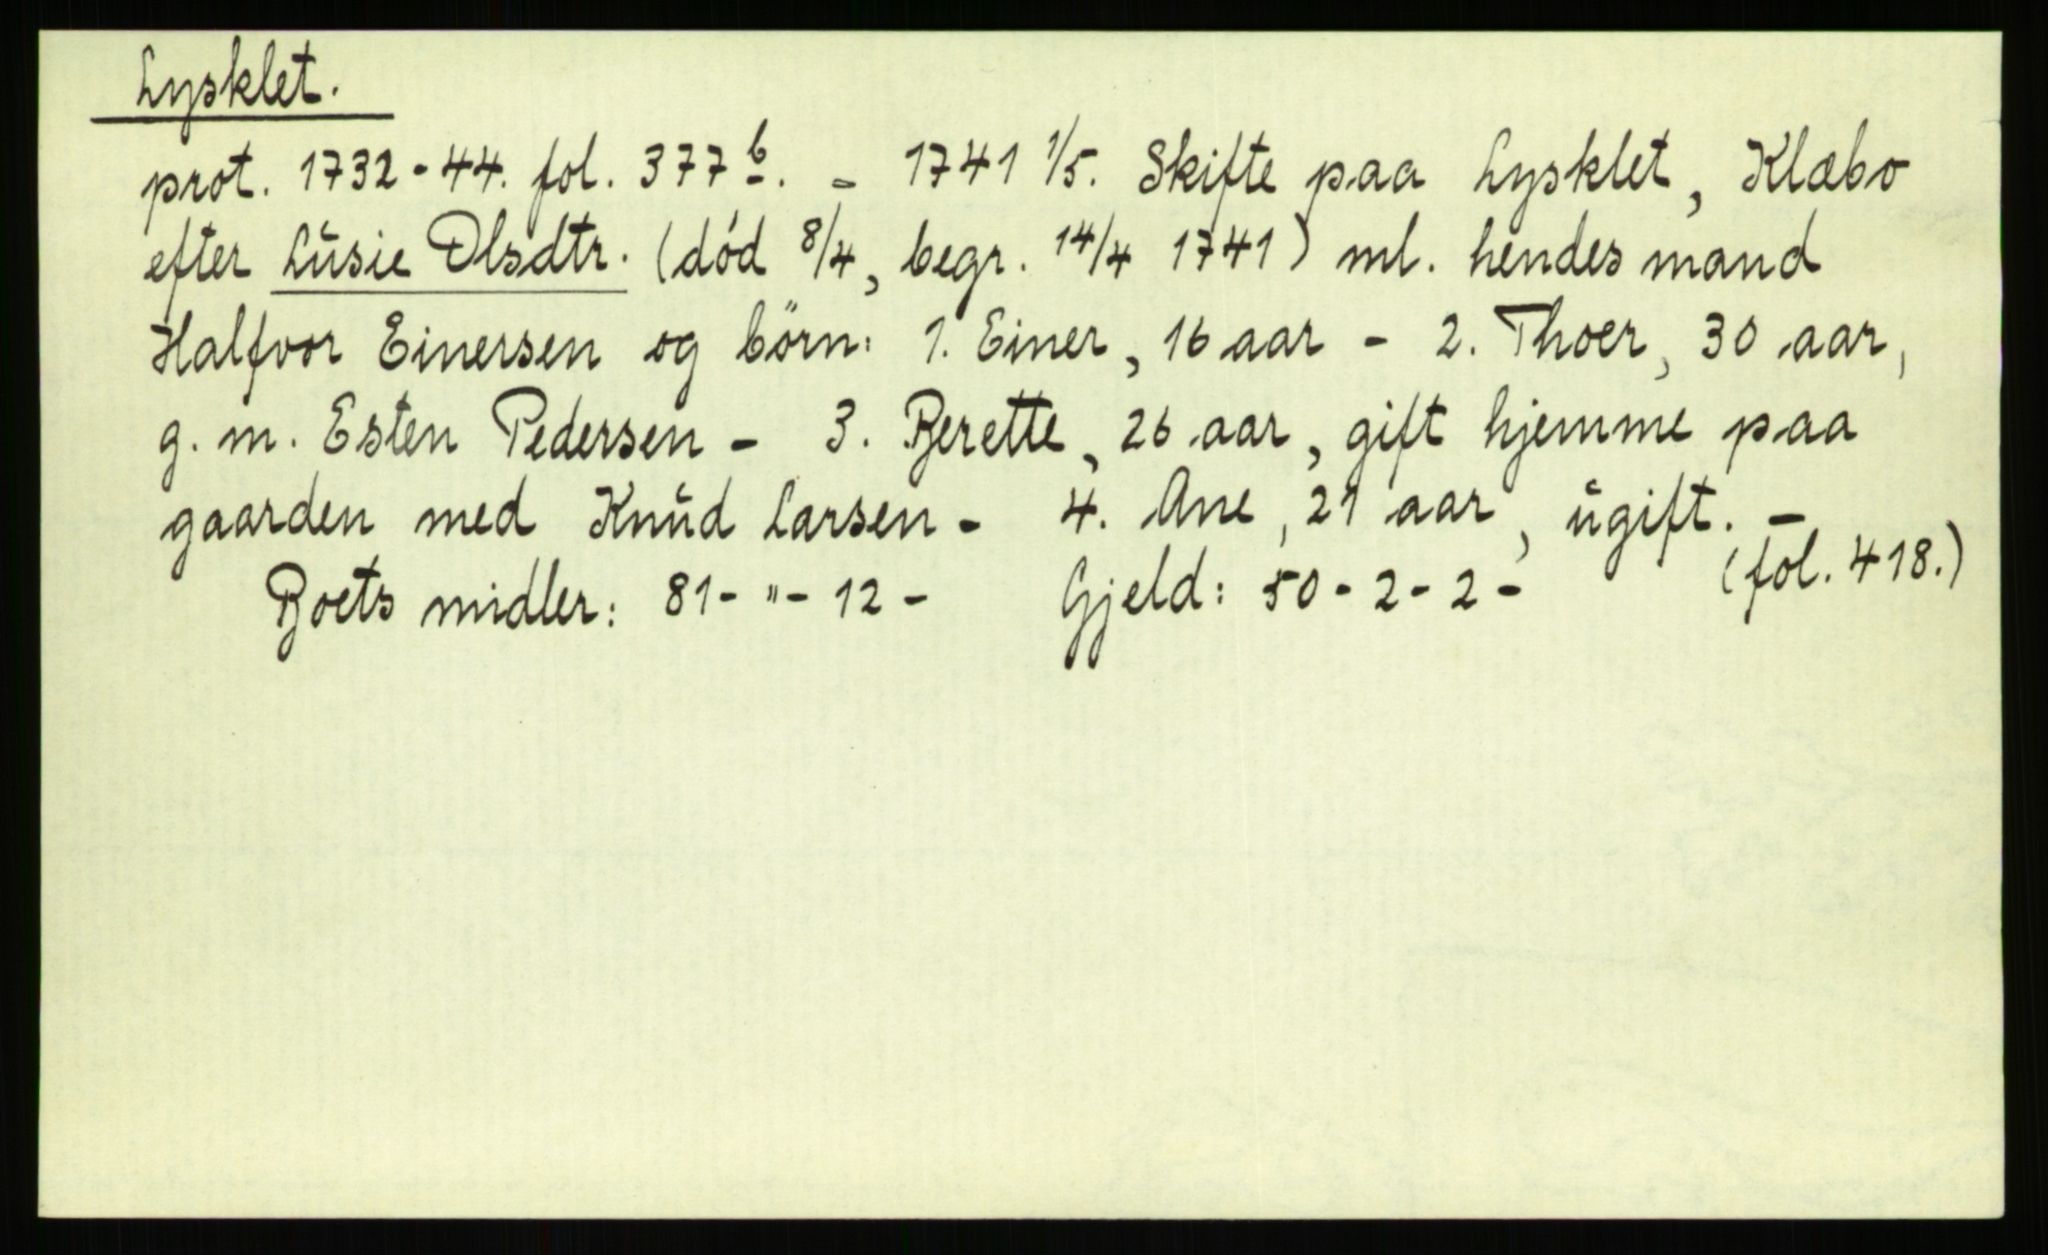 Lysklet.
prot. 1732-44. fol. 377 b. - 1741 1/5. Skifte paa Lysklet, Klæbo
efter Lusie Olsdtr. (död 8/4, begr. 14/4 1741) ml. hendes mand
Halfvor Einersen og börn: 1. Einer, 16 aar - 2. Thoer, 30 aar,
g. m. Esten Pedersen - 3. Berette, 26 aar, gift hjemme paa
gaarden med Knud Larsen - 4. Ane, 21 aar, ugift. -
Boets midler: 81 - " - 12 - Gjeld: 50 - 2 - 2 - (fol. 418.)